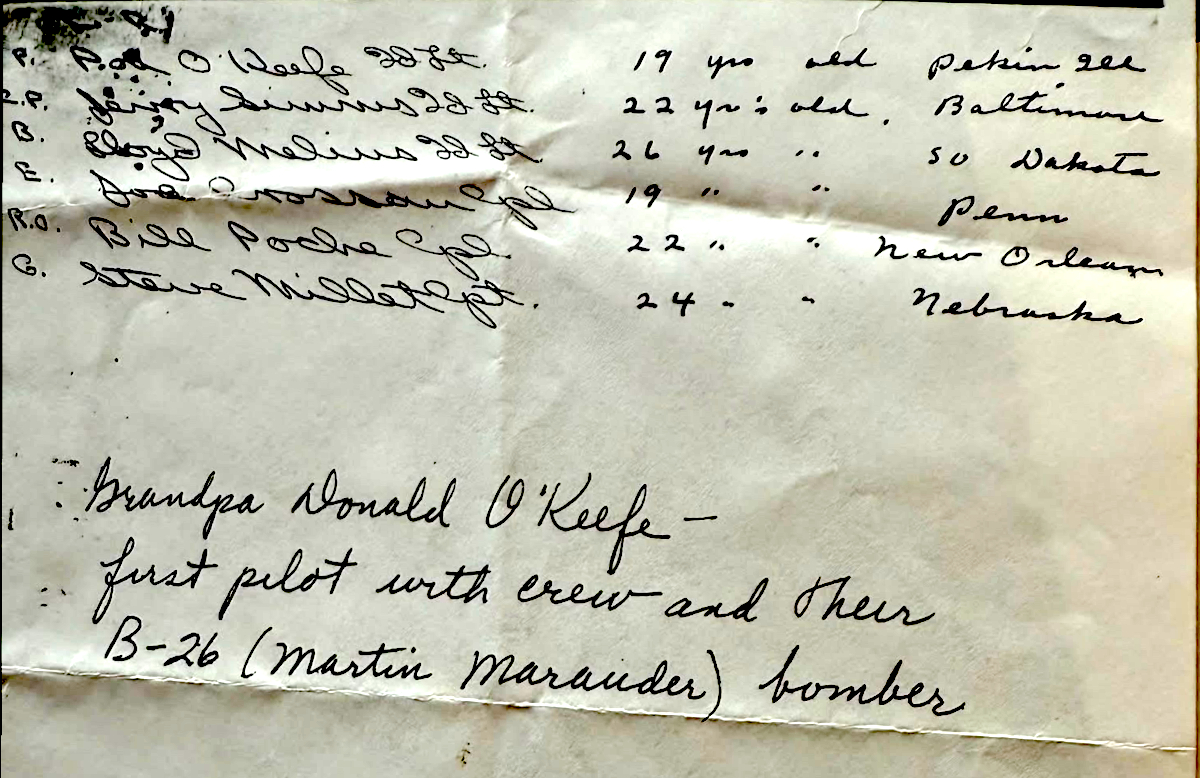 P. O'Keefe 2d Lt. 19 yrs old Pekin Ill
Jerry Simms 2d Lt. 22 yr's old. Baltimore
B. Lloyd Melius 2d Lt 26 yrs " so Dakota
E. Joe Crossan Cpl 19 " " Penn
R.O. Bill Poche Cpl. 22 " " New Orleans
G. Steve Millet Cpl. 24 " " Nebraska
Grandpa Donald O'Keefe —
first pilot with crew and their
B-26 (Martin Marauder) bomber